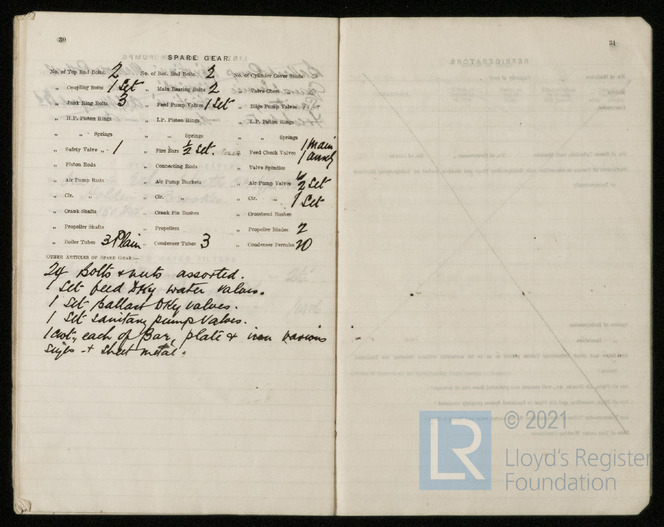 30
SPARE GEAR.
No. of Top End Bolts 2 No. of Bot. End Bolts 2 No. of Cylinder Cover Studs
„ Coupling Bolts 1 Set „ Main Bearing Bolts 2 „ Valve Chest „
„ Junk Ring Bolts 3 „ Feed Pump Valves 1 Set „ Bilge Pump Valves
„ H.P. Piston Rings „ I.P. Piston Rings „ L.P. Piston Rings
„ „ Springs „ „ Springs „ „ Springs
„ Safety Valve „ 1 „ Fire Bars ½ Set. „ Feed Check Valves 1 Main 1 Auxly
„ Piston Rods „ Connecting Rods „ Valve Spindles
„ Air Pump Rods „ Air Pump Buckets „ Air Pump Valves ½ Set
„ Cir. „ „ Cir. „ „ Cir. „ 1 Set
„ Crank Shafts „ Crank Pin Bushes „ Crosshead Bushes
„ Propeller Shafts „ Propellers „ Propeller Blades 2
„ Boiler Tubes 3 Plain „ Condenser Tubes 3 „ Condenser Ferrules 20
OTHER ARTICLES OF SPARE GEAR:—
24 Bolts & nuts assorted.
1 Set feed Dky water valves.
1 Set ballast Dky valves.
1 Set sanitary pump valves.
1 cwt. each of Bar, plate & iron various
sizes & sheet metal.
31
© 2021
LR
Lloyd's Register
Foundation